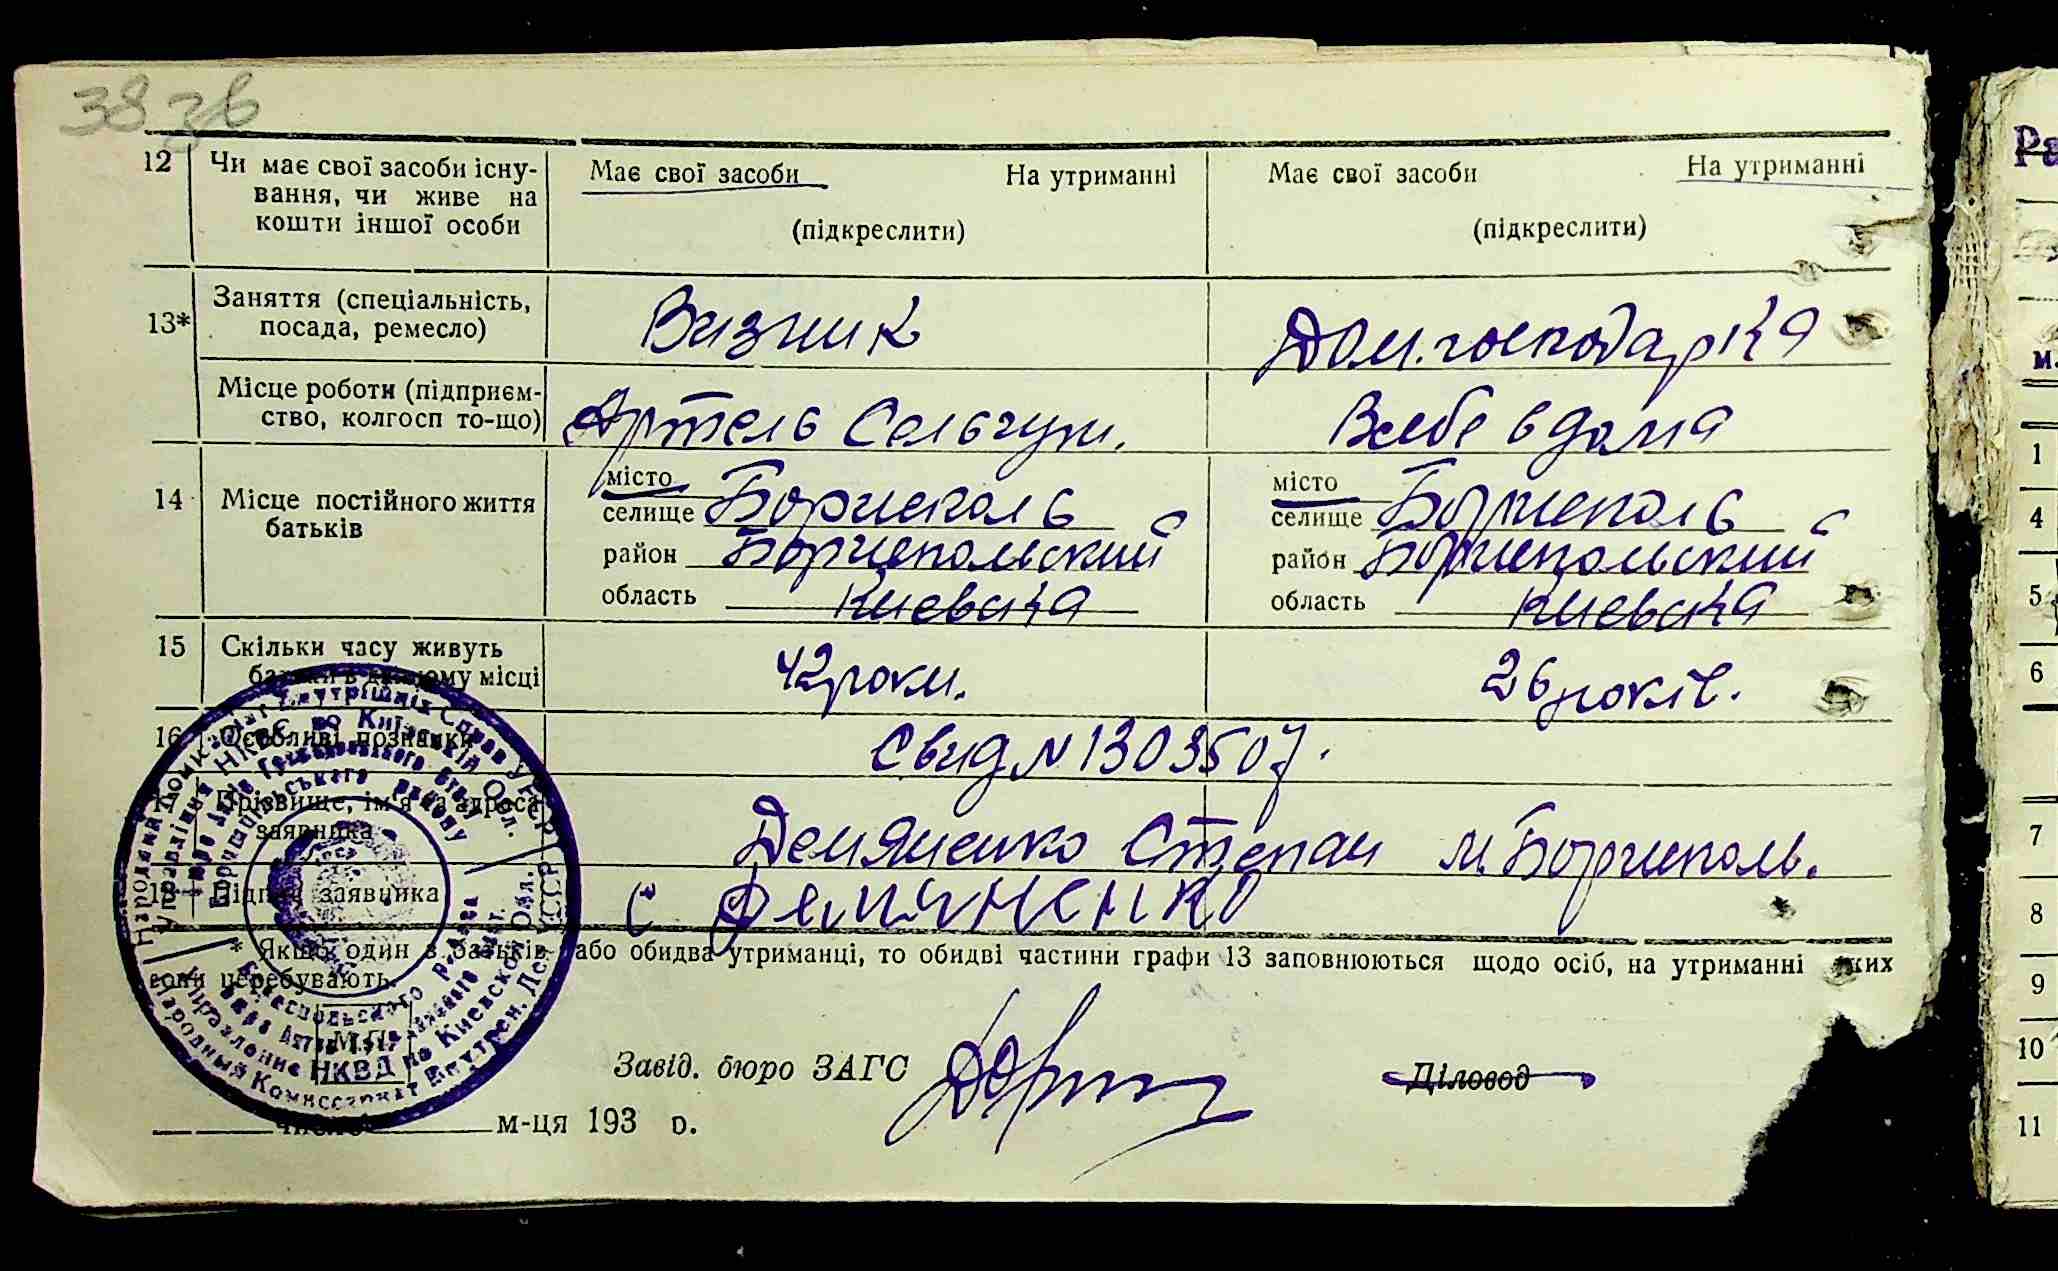 38 зв
12 Чи має свої засоби існу- Має свої засоби На утриманні Має свої засоби На утриманні
вання, чи живе на
кошти іншої особи (підкреслити) (підкреслити)
13* Заняття (спеціальність, Визник Дом. господарка
посада, ремесло)
Місце роботи (підприєм- Артель
ство, колгосп то-що) в дома
14 Місце постійного життя місто місто
батьків селище Борисполь селище Борисполь
район Бориспольский район Бориспольский
область Киевска область Киевска
15 Скільки часу живуть 42 роки. 26 років.
місці
16 Особливі познаки Свид N 1303507.
Прізвище, ім'я та адреса Демяненко Степан м. Борисполь.
заявника
18 Підпис заявника С Демяненко
* Якщо один з батьків або обидва утриманці, то обидві частини графи 13 заповнюються щодо осіб, на утриманні яких
вони перебувають.
М.П.
Завід. бюро ЗАГС Діловод
число м-ця 193 р.
Народний Комісаріат Внутрішніх Справ УСРР
Управління НКВС по Київській Обл.
Бюро Актів Громадянського Стану
району
Управление НКВД по Киевской Обл.
Народный Комиссариат Внутрен. Дел УССР
Ра
м.
1
4
5
6
7
8
9
10
11